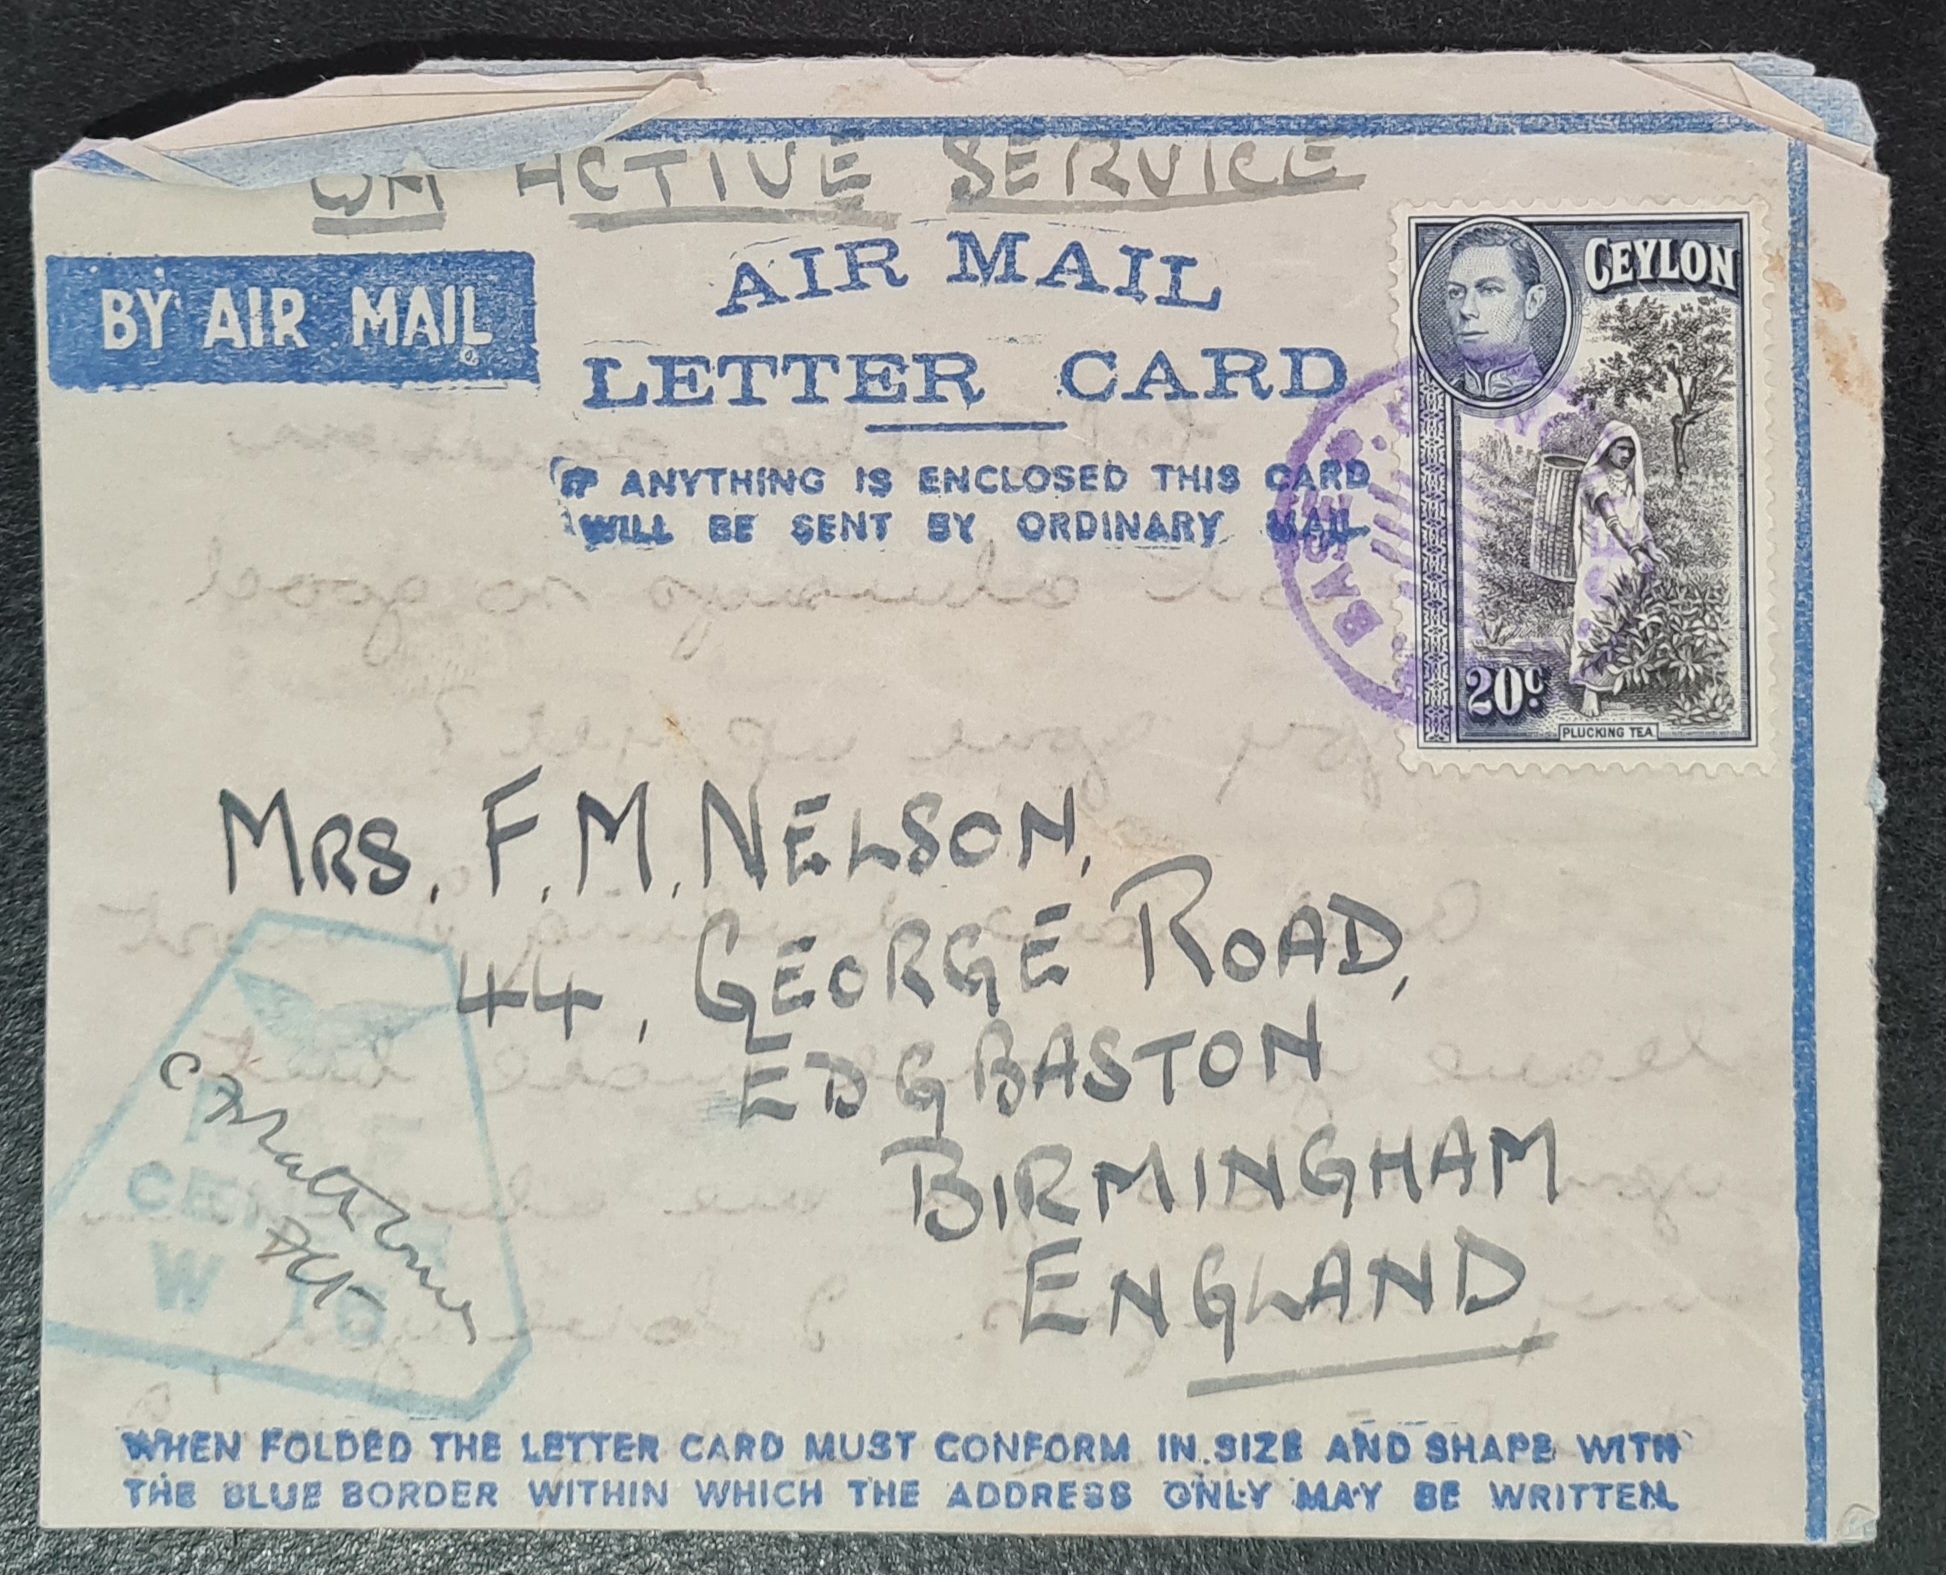 ON ACTIVE SERVICE
BY AIR MAIL
AIR MAIL
LETTER CARD
IF ANYTHING IS ENCLOSED THIS CARD
WILL BE SENT BY ORDINARY MAIL
CEYLON
20C
PLUCKING TEA
BASE
MRS. F. M. NELSON,
44, GEORGE ROAD,
EDGBASTON
BIRMINGHAM
ENGLAND
W
WHEN FOLDED THE LETTER CARD MUST CONFORM IN SIZE AND SHAPE WITH
THE BLUE BORDER WITHIN WHICH THE ADDRESS ONLY MAY BE WRITTEN.